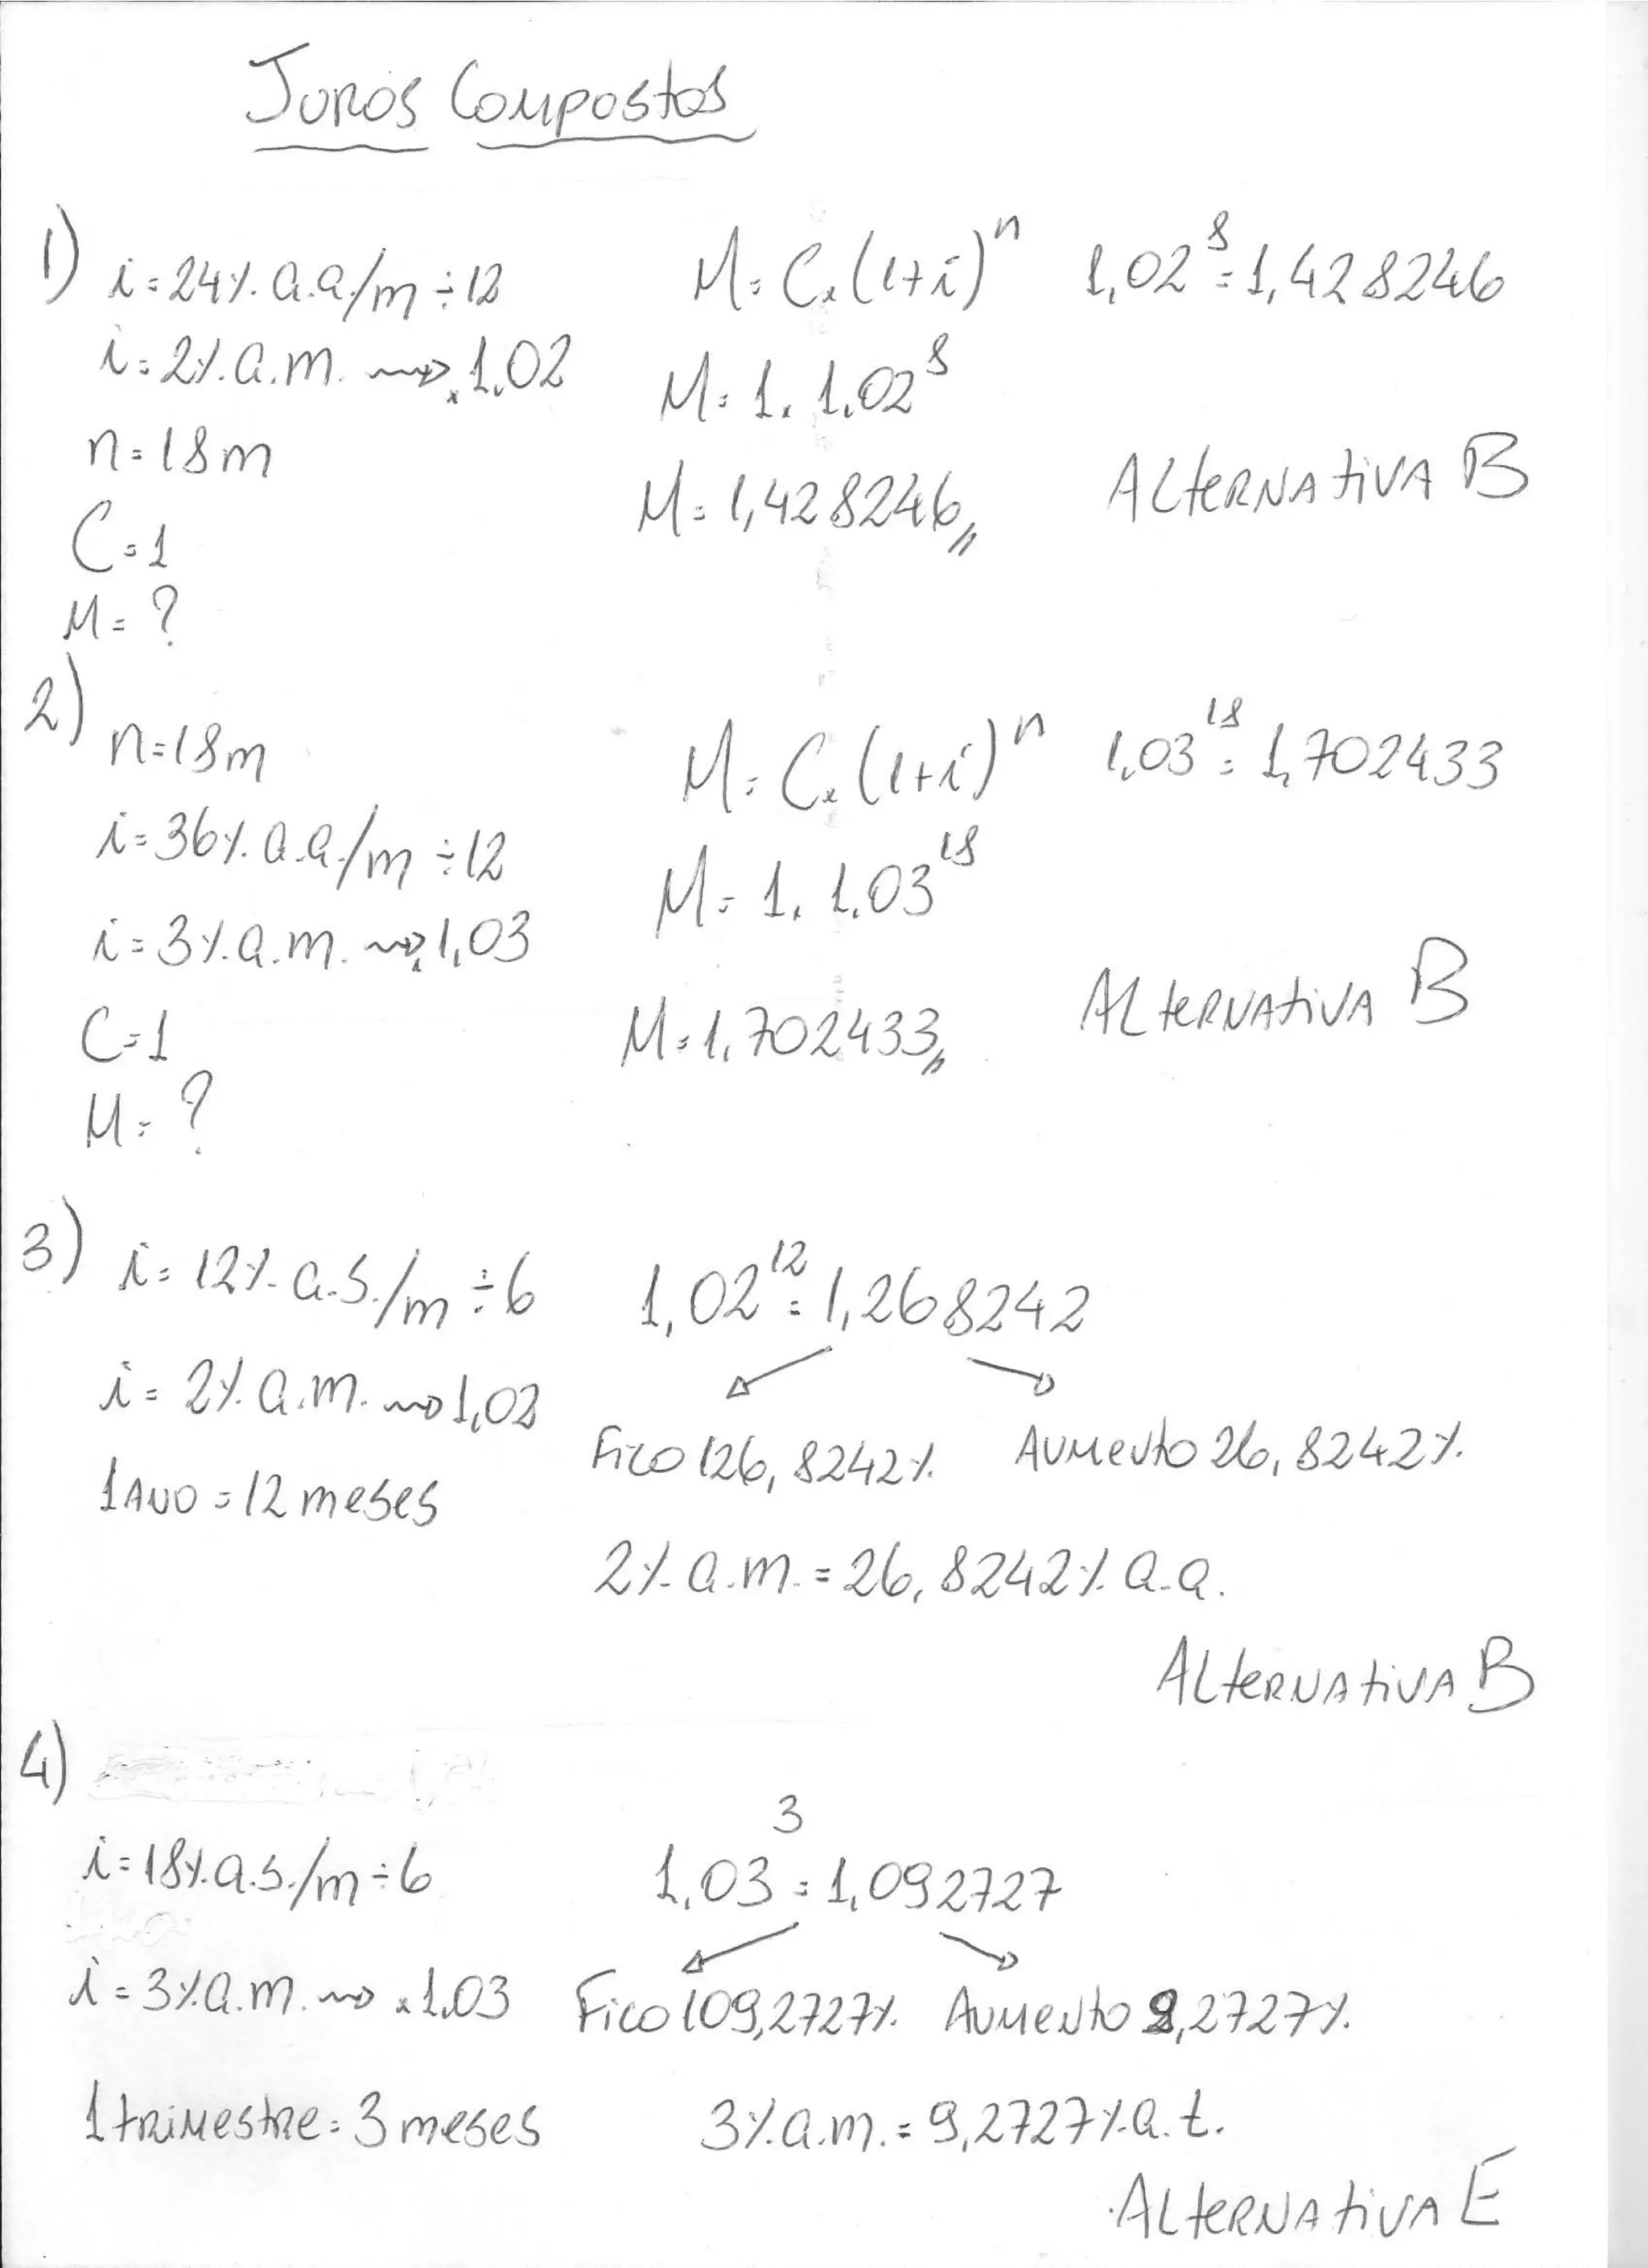 Juros Compostos
1) i = 24% a.a./m ÷ 12
i = 2% a.m. → x 1,02
n = 18m
C = 1
M = ?
M = C x (1+i)^n
M = 1 x 1,02^8
M = 1,428246
1,02^8 = 1,428246
Alternativa B
2) n = 18m
i = 36% a.a./m ÷ 12
i = 3% a.m. → x 1,03
C = 1
M = ?
M = C x (1+i)^n
M = 1 x 1,03^18
M = 1,702433
1,03^18 = 1,702433
Alternativa B
3) i = 12% a.s./m ÷ 6
i = 2% a.m. → 1,02
1 ano = 12 meses
1,02^12 = 1,268242
Fico 126,8242% Aumento 26,8242%
2% a.m. = 26,8242% a.a.
Alternativa B
4)
i = 18% a.s./m ÷ 6
i = 3% a.m. → x 1,03
1 trimestre = 3 meses
1,03^3 = 1,092727
Fico 109,2727% Aumento 9,2727%
3% a.m. = 9,2727% a.t.
Alternativa E